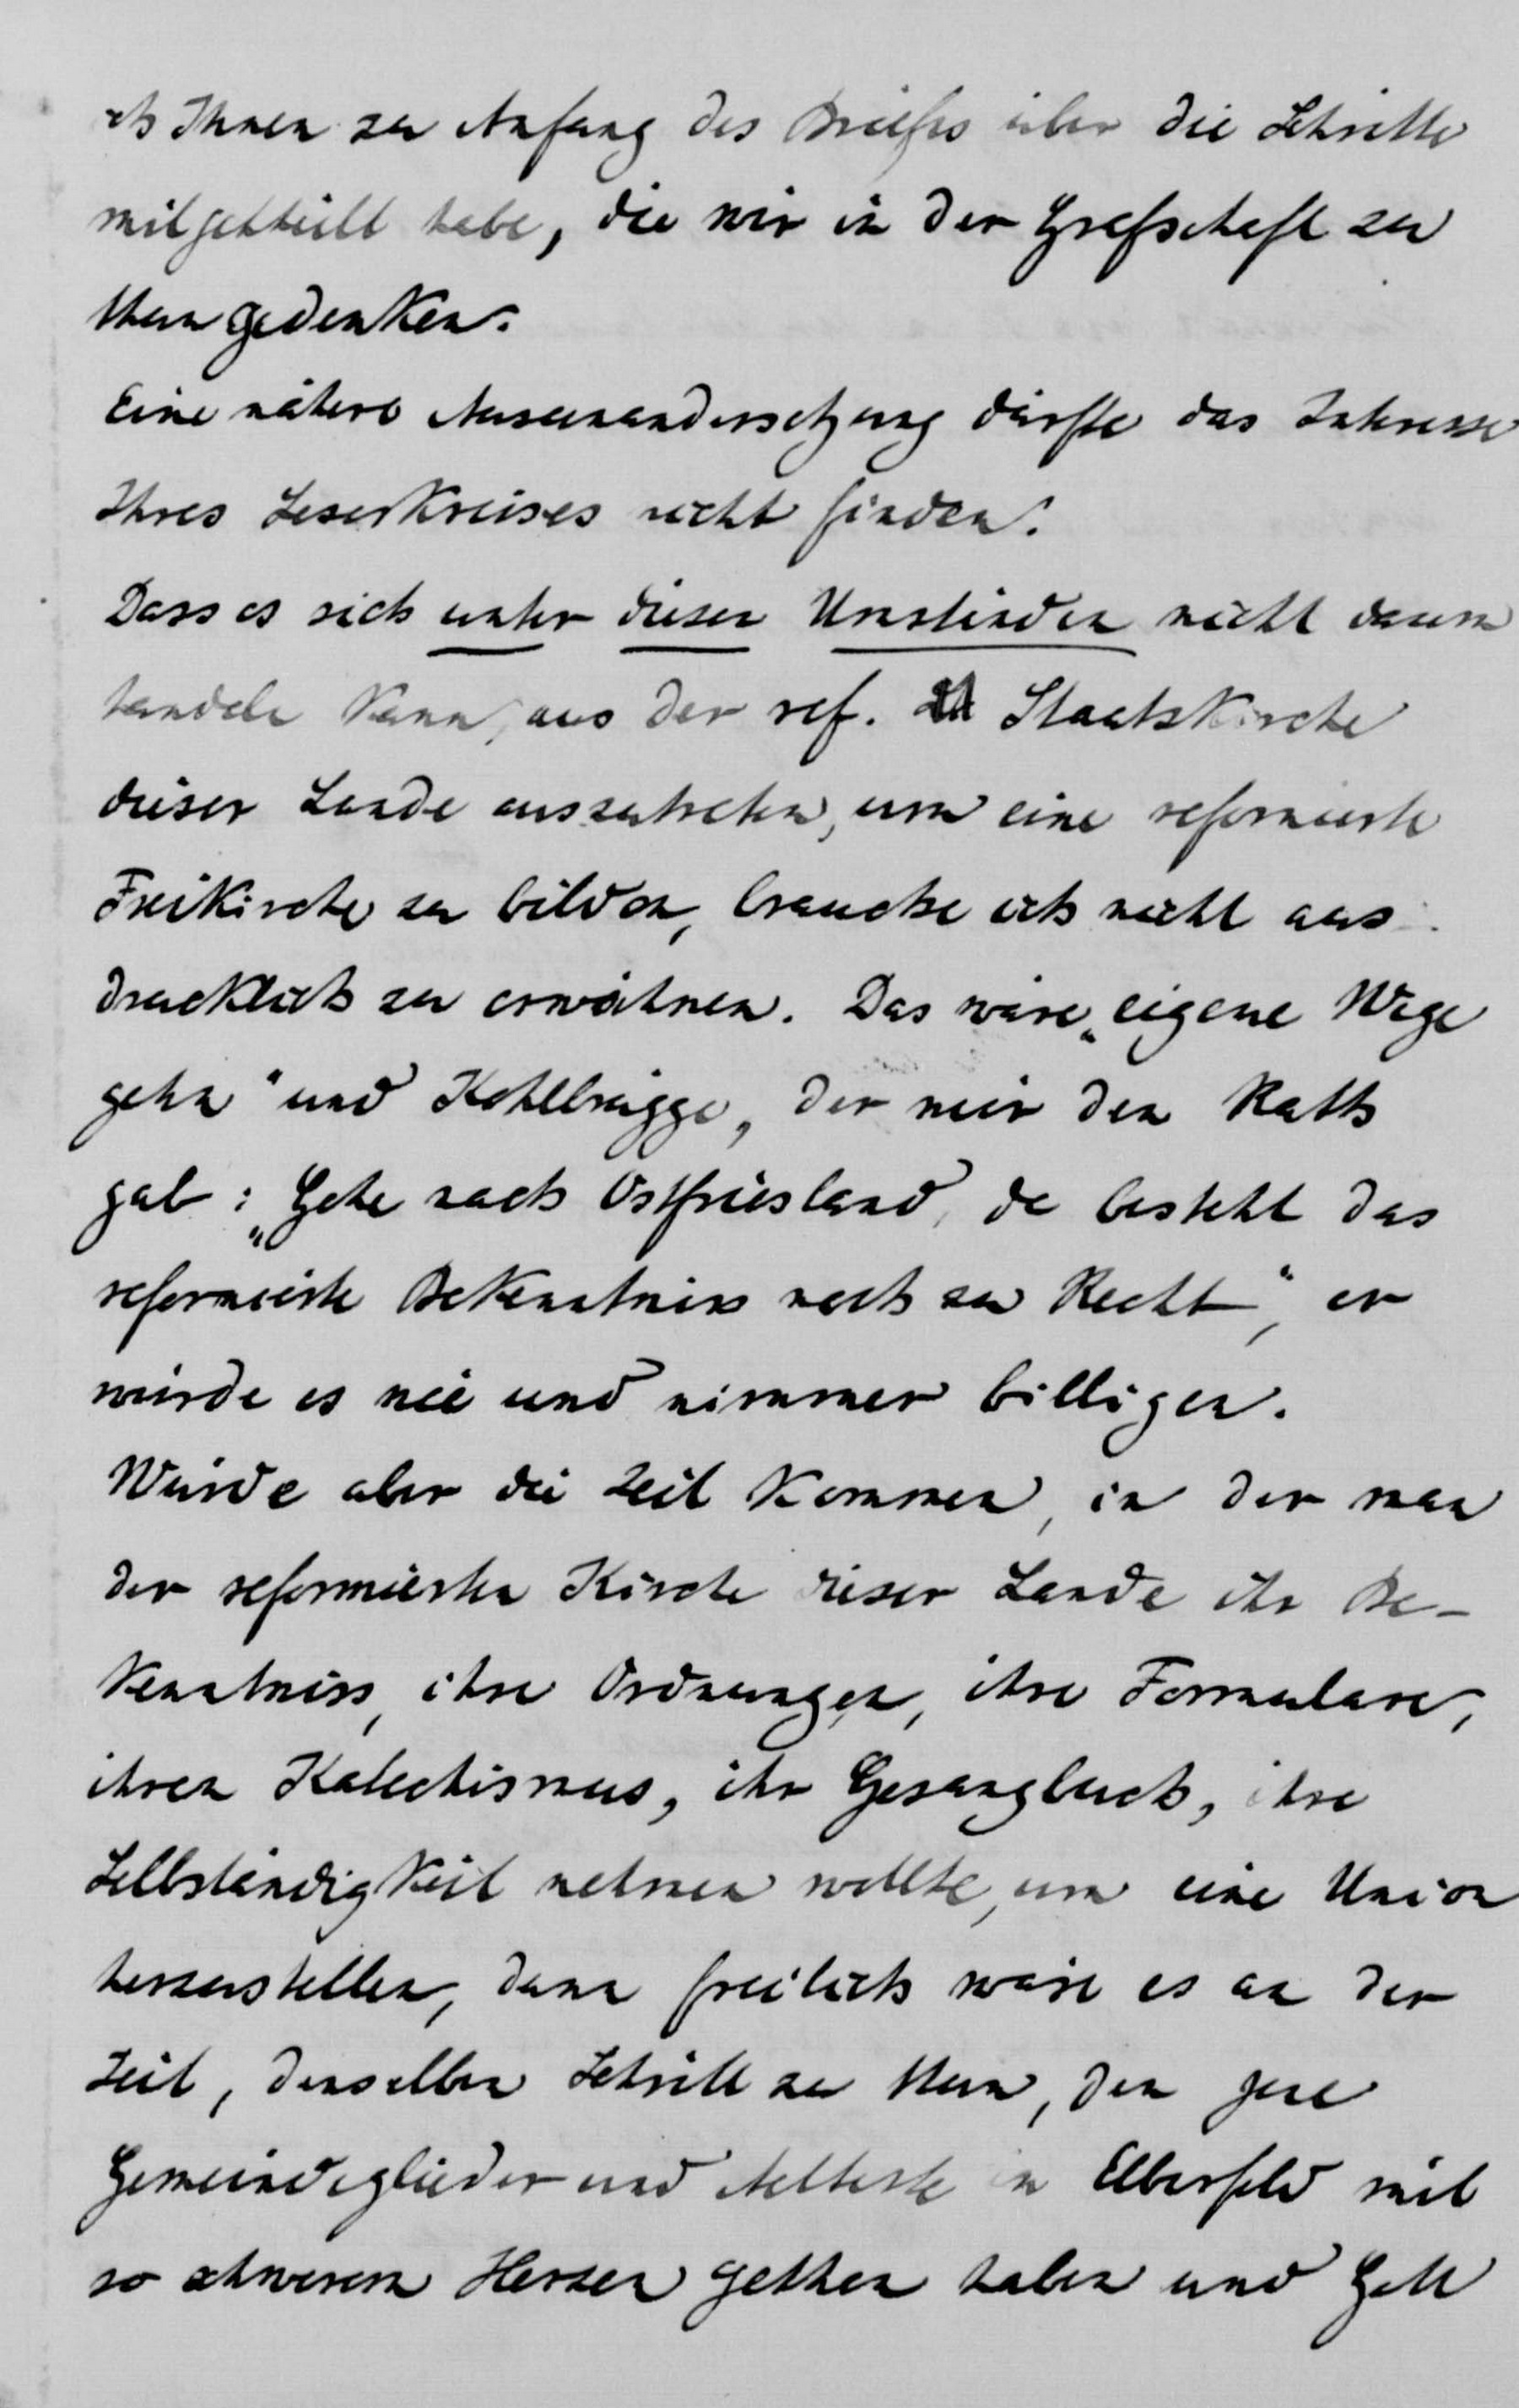 ich Ihnen zu Anfang des Briefes über die Schritte
mitgetheilt habe, die wir in der Grafschaft zu
thun gedenken.
Eine nähere Auseinandersetzung dürfte das Interesse
Ihres Leserkreises nicht finden.
Dass es sich unter diesen Umständen nicht darum
handeln kann, aus der ref. Staatskirche
dieser Lande auszutreten, um eine reformierte
Freikirche zu bilden, brauche ich nicht aus
drücklich zu erwähnen. Das wäre „eigene Wege
gehn" und Kohlbrügge, der mir den Rath
gab: „Gehe nach Ostfriesland, da besteht das
reformierte Bekenntniss noch zu Recht", er
würde es nie und nimmer billigen.
Würde aber die Zeit kommen, in der man
der reformierten Kirche dieser Lande ihr Be-
kenntniss, ihre Ordnungen, ihre Formulare,
ihren Katechismus, ihr Gesangbuch, ihre
Selbständigkeit nehmen wollte, um eine Union
herzustellen, dann freilich wäre es an der
Zeit, denselben Schritt zu thun, den jene
Gemeindeglieder und Aelteste in Elberfeld mit
so schwerem Herzen gethan haben und Gott